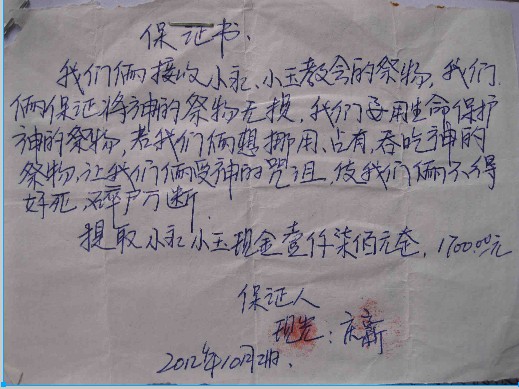 保证书.
我们俩接收小永、小玉教会的祭物，我们
俩保证将神的祭物无损，我们要用生命保护
神的祭物，若我们俩想挪用、占有、吞吃神的
祭物，让我们俩受神的咒诅，使我们俩不得
好死，碎尸万断.
提取小永小玉现金壹仟柒佰元整，1700.00元
保证人
现先：庆新
2012年10月2日.